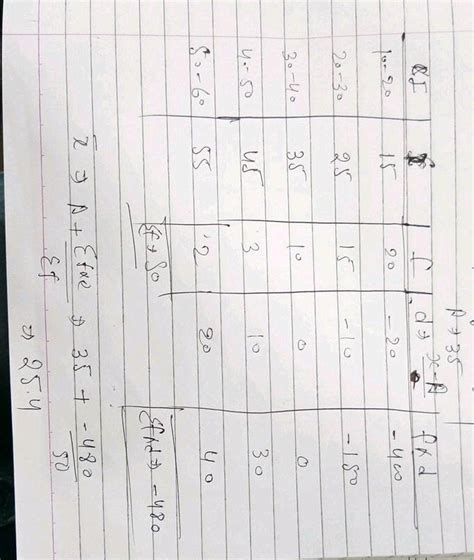 A → 35
CI x f d → x-A f×d
10-20 15 20 -20 -400
20-30 25 15 -10 -150
30-40 35 10 0 0
40-50 45 3 10 30
50-60 55 2 20 40
Σf → 50 Σfxd → -480
x̄ ⇒ A + Σfxd ⇒ 35 + -480
Σf 50
⇒ 25.4